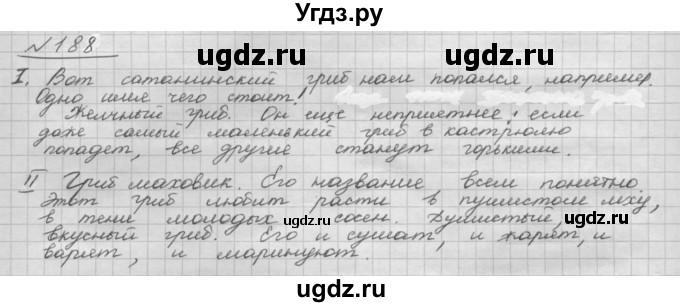 Угдз.ру
ugdz.ru ugdz.ru ugdz.ru
№188
I. Вот сатанинский гриб нам попался, например.
Одно имя чего стоит!
Желчный гриб. Он еще неприятнее: если
даже самый маленький гриб в кастрюлю
попадет, все другие станут горькими.
ugdz.ru
II Гриб маховик. Его название всем понятно.
Этот гриб любит расти в пушистом мху,
в тени молодых сосен. Душистый,
вкусный гриб. Его и сушат, и жарят, и
варят, и маринуют.
ugdz.ru ugdz.ru ugdz.ru